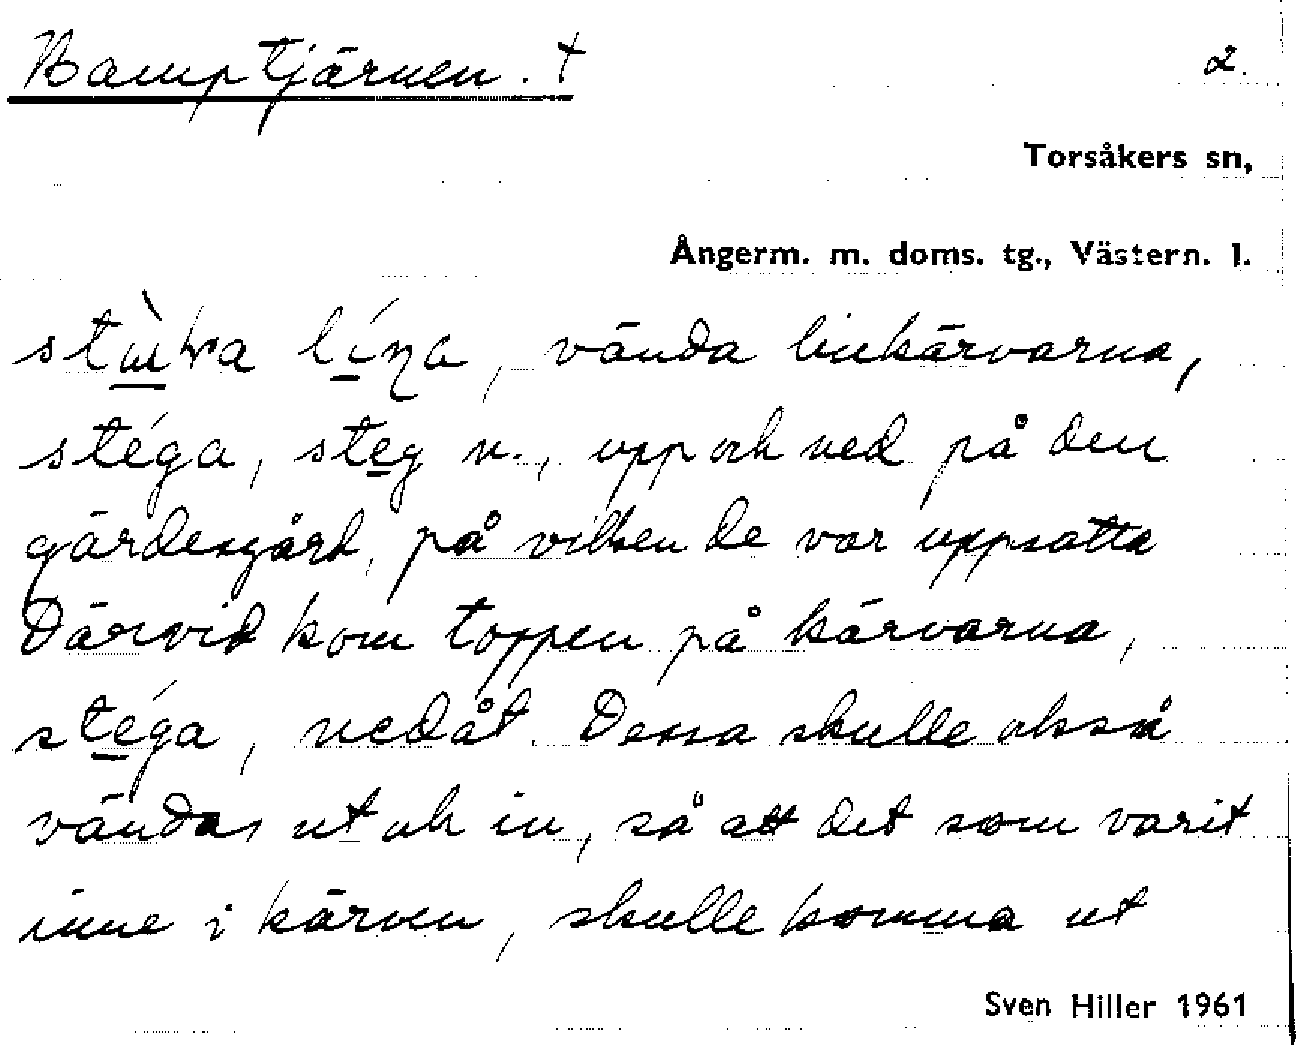 Hamptjärnen. † 2.
Torsåkers sn,
Ångerm. m. doms. tg., Västern. l.
líṇa, vända linkärvarna,
stéga, steg n., upp och ned på den
gärdesgård, på vilken de var uppsatta
Därvid kom toppen på kärvarna,
stéga, nedåt. Dessa skulle också
vändas ut och in, så att det som varit
inne i kärven, skulle komma ut
Sven Hiller 1961